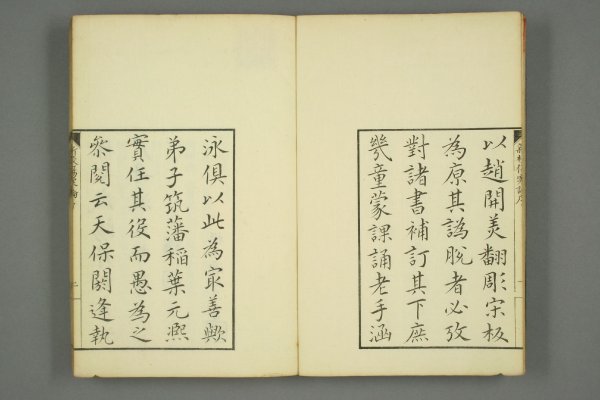 以趙開美翻彫宋板
為原其譌脫者必攷
對諸書補訂其下庶
幾童蒙課誦老手涵
泳俱以此為最善歟
弟子筑藩稲葉元熙
實任其役而愚為之
叅閱云天保閼逢執